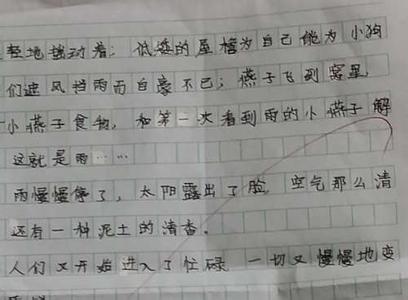 轻地摇动着；低矮的屋檐为自己能为小狗
们遮风挡雨而自豪不已；燕子飞到窝里
小燕子食物，和第一次看到雨的小燕子解
这就是雨……
雨慢慢停了，太阳露出了脸，空气那么清
还有一种泥土的清香。
人们又开始进入了忙碌，一切又慢慢地变